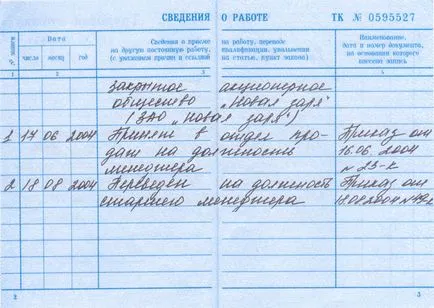 СВЕДЕНИЯ О РАБОТЕ ТК № 0595527
№ записи
Дата
число месяц год
Сведения о приеме на работу, переводе
на другую постоянную работу, квалификации, увольнении
(с указанием причин и ссылкой на статью, пункт закона)
Наименование,
дата и номер документа,
на основании которого
внесена запись
1 2 3 4
Закрытое акционерное
общество „Новая заря"
(ЗАО „Новая заря")
1 17 06 2004 Принят в отдел про- Приказ от
даж на должность 16.06.2004
менеджера № 23-к
2 18 08 2004 Переведен на должность Приказ от
старшего менеджера 18.08.2004
2 3